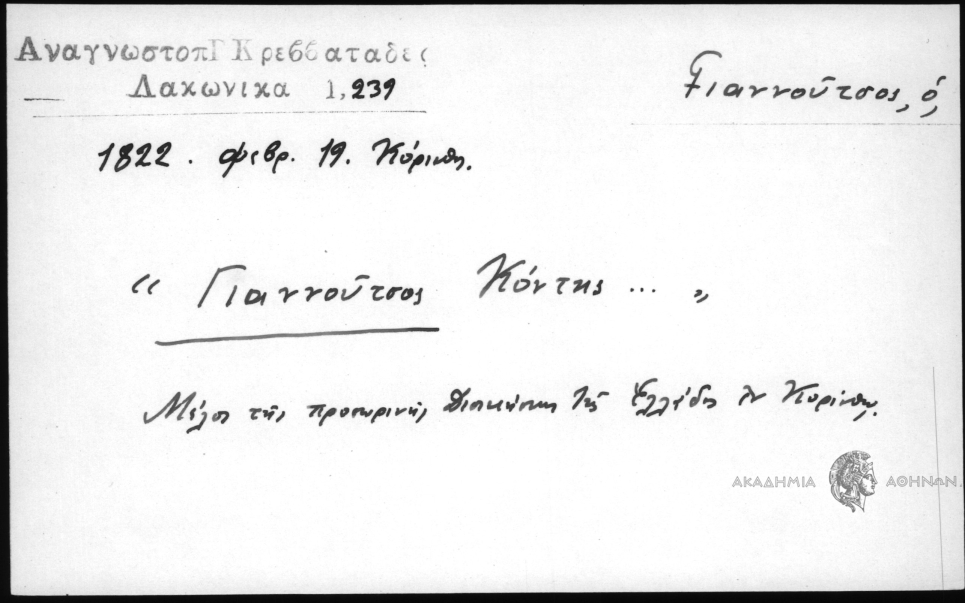 ΑναγνωστοπΓ Κρεββαταδες
Γιαννοῦτσος, ὁ,
Λακωνικα 1,239
1822. Φεβρ. 19. Κόρινθος.
“ Γιαννοῦτσος Κόντης ... „
Μέλος τῆς προσωρινῆς Διοικήσεως τῆς Ἑλλάδος ἐν Κορίνθῳ.
ΑΚΑΔΗΜΙΑ ΑΘΗΝΩΝ